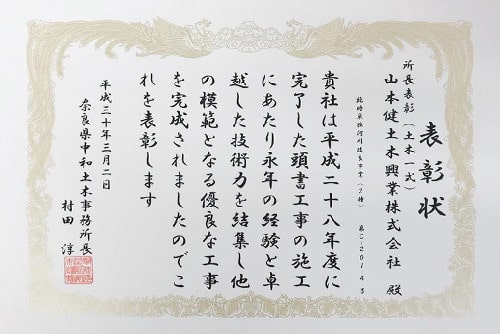 表彰状
所長表彰(土木一式)
山本健土木興業株式会社 殿
第C-2014号
貴社は平成二十八年度に
完了した頭書工事の施工
にあたり永年の経験と卓
越した技術力を結集し他
の模範となる優良な工事
を完成されましたのでこ
れを表彰します
平成三十年三月二日
奈良県中和土木事務所長
村田 淳